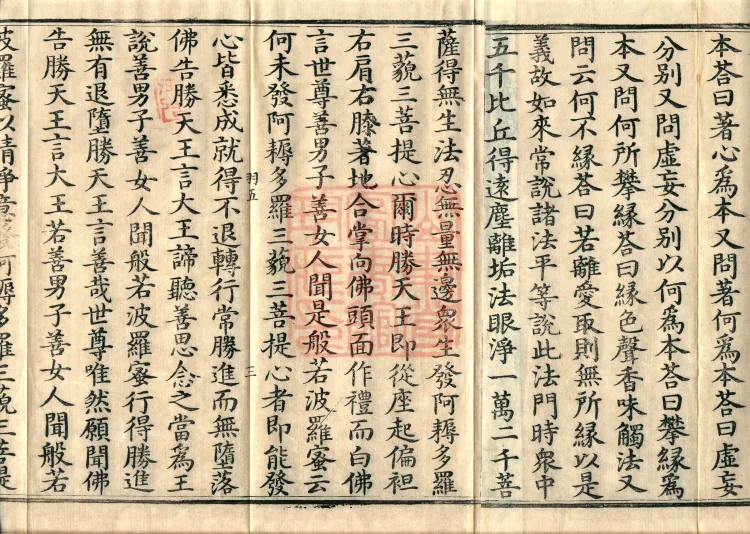 本荅曰著心爲本又問著何爲本荅曰虚妄
分别又問虚妄分别以何爲本荅曰攀緣爲
本又問何所攀緣荅曰緣色聲香味觸法又
問云何不緣荅曰若離愛取則無所緣以是
義故如來常說諸法平等說此法門時衆中
五千比丘得遠塵離垢法眼淨一萬二千菩
薩得無生法忍無量無邊衆生發阿耨多羅
三藐三菩提心爾時勝天王即從座起偏袒
右肩右膝著地合掌向佛頭面作禮而白佛
言世尊善男子善女人聞是般若波羅蜜云
何未發阿耨多羅三藐三菩提心者即能發
羽五 三
心皆悉成就得不退轉行常勝進而無墮落
佛告勝天王言大王諦聽善思念之當爲王
說善男子善女人聞般若波羅蜜行得勝進
無有退墮勝天王言善哉世尊唯然願聞佛
告勝天王言大王若善男子善女人聞般若
波羅蜜以清淨意發阿耨多羅三藐三菩提